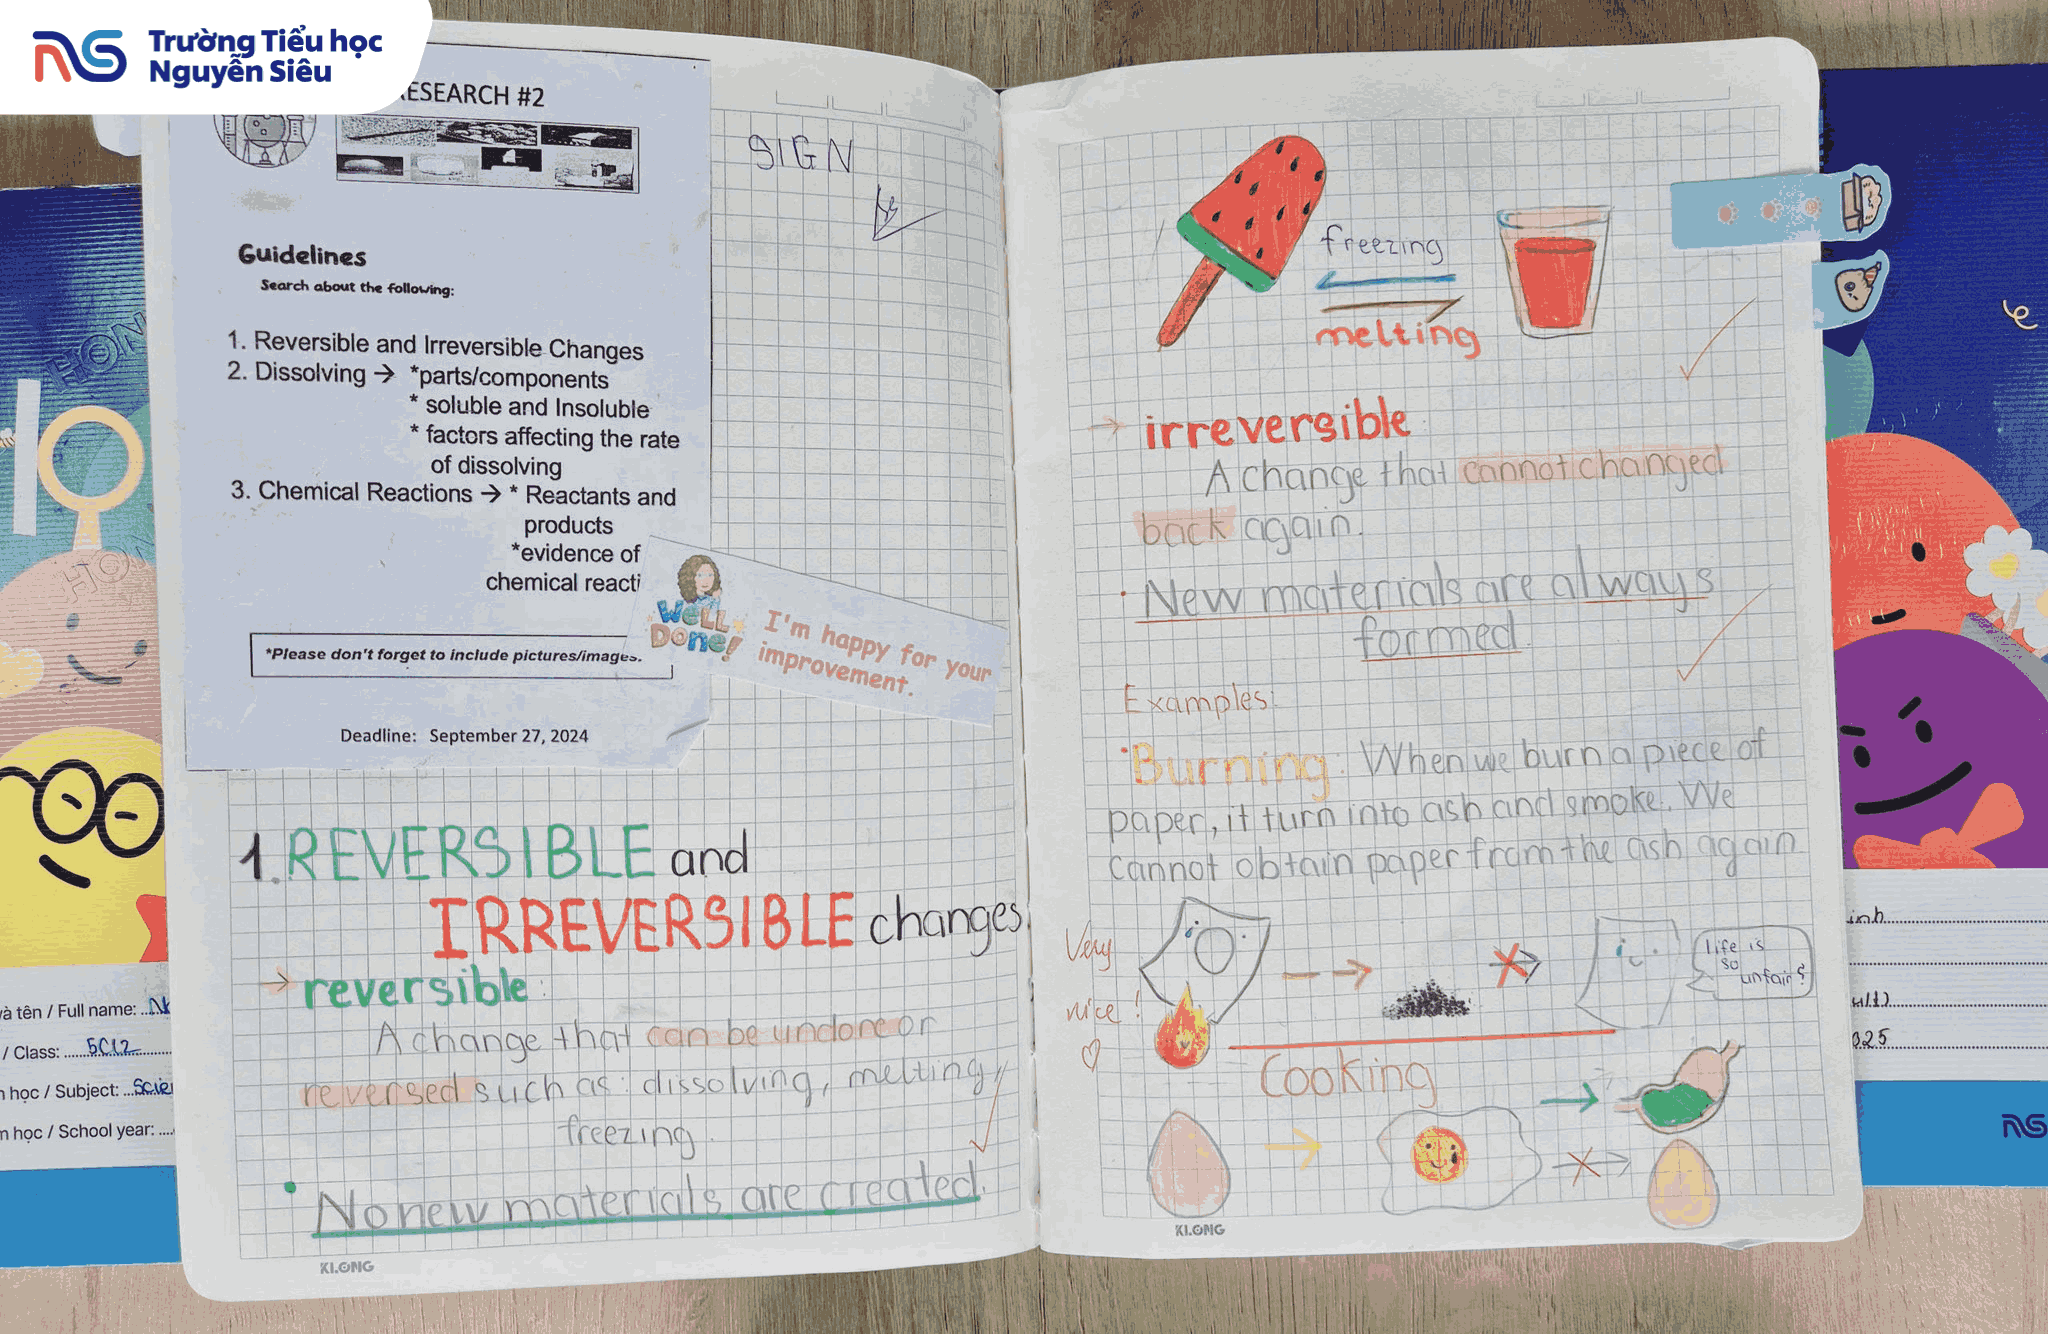 Trường Tiểu học
Nguyễn Siêu
ESEARCH #2
Guidelines
Search about the following:
1. Reversible and Irreversible Changes
2. Dissolving → *parts/components
* soluble and Insoluble
* factors affecting the rate
of dissolving
3. Chemical Reactions → * Reactants and
products
*evidence of
chemical reacti
*Please don't forget to include pictures/images.
Deadline: September 27, 2024
SIGN
WELL DONE!
I'm happy for your
improvement.
1. REVERSIBLE and
IRREVERSIBLE changes
→ reversible:
A change that can be undone or
reversed such as: dissolving, melting,
freezing.
• No new materials are created.
KLONG
freezing
melting
→ irreversible:
A change that cannot changed
back again.
• New materials are always
formed.
Examples:
• Burning: When we burn a piece of
paper, it turn into ash and smoke. We
cannot obtain paper from the ash again
Very
nice!
life is
so
unfair!
Cooking
KLONG
và tên / Full name:
/ Class: 5CI2
học / Subject: Scie
học / School year:
inh
025
NS